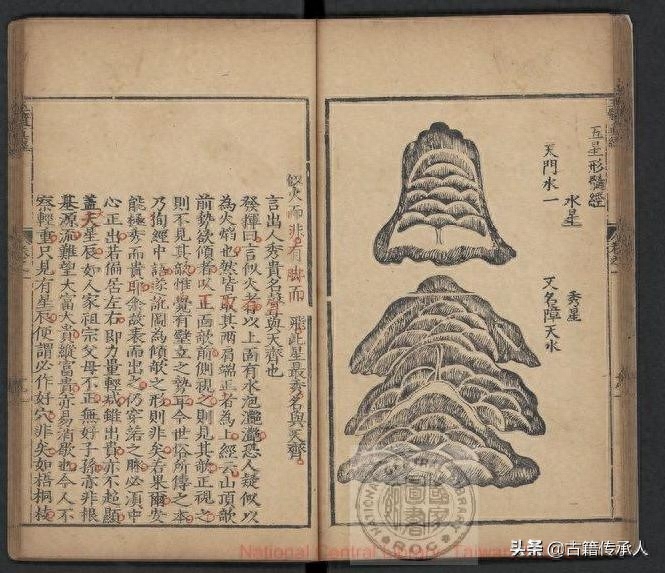 五星形髓經
水星
天門水一
秀星
又名障天水
似火而非有脚而飛此星最秀名與天齊
言出人秀貴名聲與天齊也
發揮曰言似火者以上面有水泡灔灔恐人疑似以
為火焰也然皆取其兩肩端正者為上經云山頂欹
前勢欲傾者以正面欹前側視之則見其欹正視之
則不見其欹惟覺有壁立之勢耳今世俗所傳之本
乃徇經中語遂訛圖為傾欹之形則非矣若果爾安
能極秀而貴耶
心正出若偏居左右即力量輕减雖出貴亦不超顯
蓋天星辰如人家祖宗父母不正無好子孫亦非根
基源流難望大富大貴縱富貴亦易消歇也今人不
察輕重只見有星辰便謂必作好穴非矣如梧桐枝
National Central Library, Taiwan
頭条 @古籍传承人